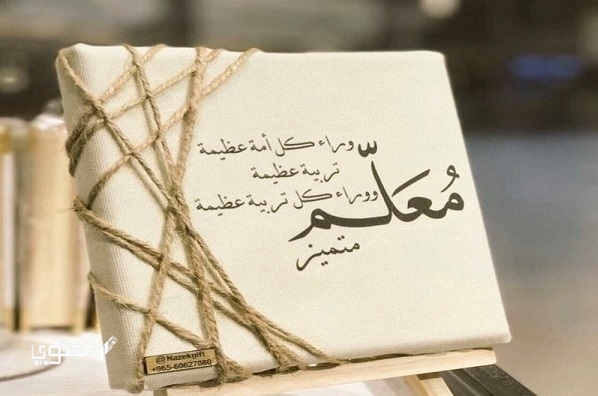 وراء كل أمة عظيمة
تربية عظيمة
ووراء كل تربية عظيمة
مُعَلّم
متميز
@Nazekgift
+965-60627080
محتوى